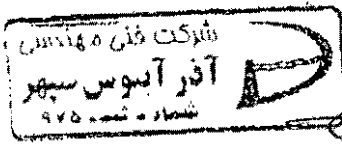 شرکت فنی مهندسی
آذر آبنوس سپهر
شماره ثبت ۹۷۵